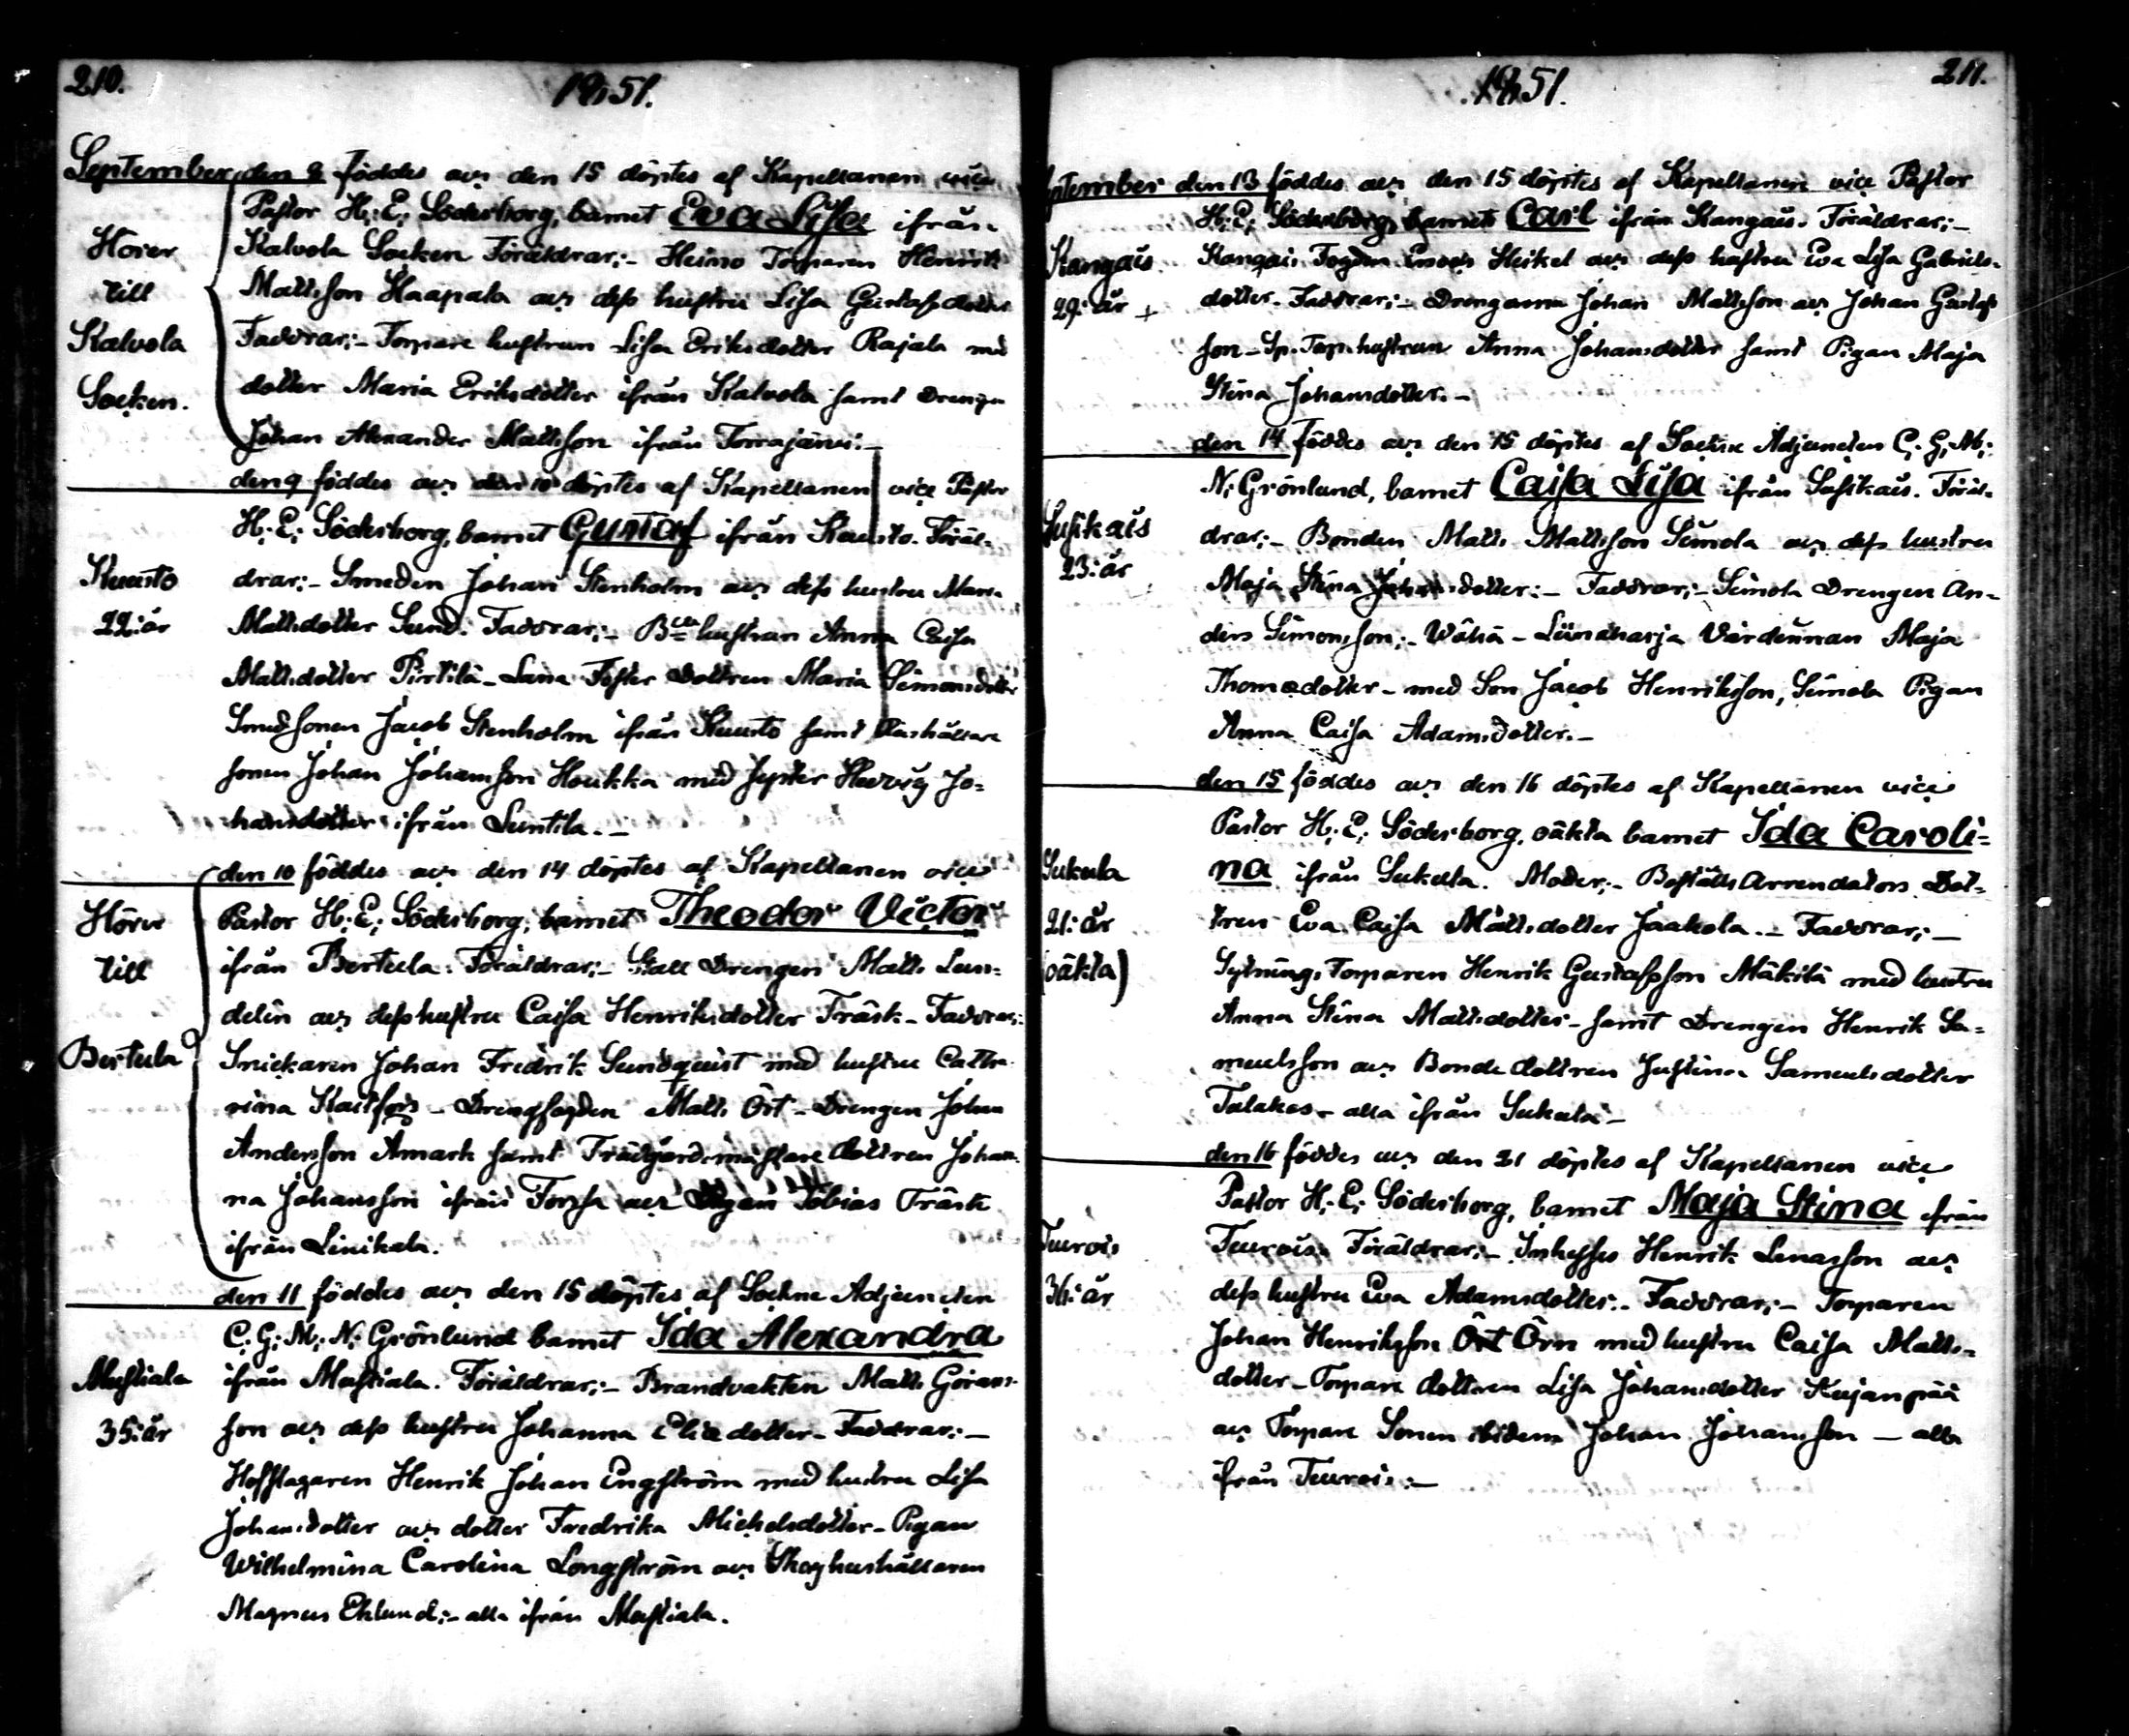 210.
1851.
September den 9 föddes och den 15 döptes af Kapellanen vice
Pastor H: E: Söderborg, barnet Eva Lisa ifrån
Horer
till
Kalvola
Socken.
Kalvola Socken Föräldrar:- Heimo Torparen Henrik
Mattsson Haapala och dess hustru Lisa Gustafsdotter
Faddrar:- Torpare hustrun Lisa Eriksdotter Rajala med
dotter Maria Eriksdotter ifrån Kalvola samt Drengen
Johan Alexander Mattsson ifrån Torrajärvi:-
den 9 föddes och den 10 döptes af Kapellanen vice Pastor
H: E: Söderborg, barnet Gustaf ifrån Kuusto. Föräl-
Kuusto
22: år
drar:- Smeden Johan Stenholm och dess hustru Maria
Mattsdotter Sund. Faddrar:- hustrun Anna Caisa
Mattsdotter Pirtilä - Dottren Maria Simonsdotter
Smedsonen Jacob Stenholm ifrån Kuusto samt
sonen Johan Johansson Houkka med syster Hedvig Jo-
hansdotter ifrån Luntila.-
den 10 föddes och den 14 döptes af Kapellanen vice
Hörer
till
Bertula
Pastor H: E: Söderborg, barnet Theodor Victor
ifrån Bertula. Föräldrar:- Stall Drengen Matts Lun-
delin och dess hustru Caisa Henriksdotter Träsk - Faddrar:
Snickaren Johan Fredrik Sundquist med hustru Catha-
rina - Drengfogden Matts Öst - Drengen Johan
Andersson Amark samt Trädgårdsmästare dottren Johan-
na Johansson ifrån Forssa och Tobias Träsk
ifrån Linikala.
den 11 föddes och den 15 döptes af Sockne Adjuncten
C: G: M: N: Grönlund barnet Ida Alexandra
Mustiala
35: år
ifrån Mustiala. Föräldrar:- Brandvakten Matts Görans-
son och dess hustru Johanna Eliædotter - Faddrar:-
Hofslagaren Henrik Johan Engström med hustru Lisa
Johansdotter och dotter Fredrika Michelsdotter - Pigan
Wilhelmina Carolina Longström och Skoghushållaren
Magnus Eklund:- alla ifrån Mustiala.
1851.
211.
September den 13 föddes och den 15 döptes af Kapellanen vice Pastor
H: E: Söderborg, barnet Carl ifrån Kangais. Föräldrar:-
Kangais
29: år +
Kangais Fogden Heikel och dess hustru Eva Lisa Gabriels-
dotter. Faddrar:- Drengarne Johan Mattsson och Johan Gustaf-
son - Sp. Torp. hustrun Anna Johansdotter samt Pigan Maja
Stina Johansdotter.-
den 14 föddes och den 15 döptes af Sockne Adjuncten C: G: M:
N: Grönlund, barnet Caisa Lisa ifrån Susikais. Föräl-
Susikais
23: år
drar:- Bonden Matts Mattsson Simola och dess hustru
Maja Stina Johansdotter:- Faddrar:- Simola Drengen An-
ders Simonsson:- Wähä - Liinaharja Värdinnan Maja
Thomædotter - med Son Jacob Henriksson, Simola Pigan
Anna Caisa Adamsdotter.-
den 15 föddes och den 16 döptes af Kapellanen vice
Pastor H: E: Söderborg, oäkta barnet Ida Caroli-
Sukula
21: år
(oäkta)
na ifrån Sukula. Moder:- Beställs Arrendators Dot-
tren Eva Caisa Mattsdotter Jaakola.- Faddrar:-
Sytnings Torparen Henrik Gustafsson Mäkilä med hustru
Anna Stina Mattsdotter - samt Drengen Henrik Sa-
muelsson och Bonde dottren Justina Samuelsdotter
Talakas - alla ifrån Sukula:-
den 16 föddes och den 21 döptes af Kapellanen vice
Pastor H: E: Söderborg, barnet Maja Stina ifrån
Teurois
36: år
Teurois. Föräldrar:- Inhyses Henrik Lenasson och
dess hustru Eva Adamsdotter.- Faddrar:- Torparen
Johan Henriksson Öst Örn med hustru Caisa Matts-
dotter - Torpare dottren Lisa Johansdotter Kujanpää
och Torpare Sonen ibidem Johan Johansson - alla
ifrån Teurois:-